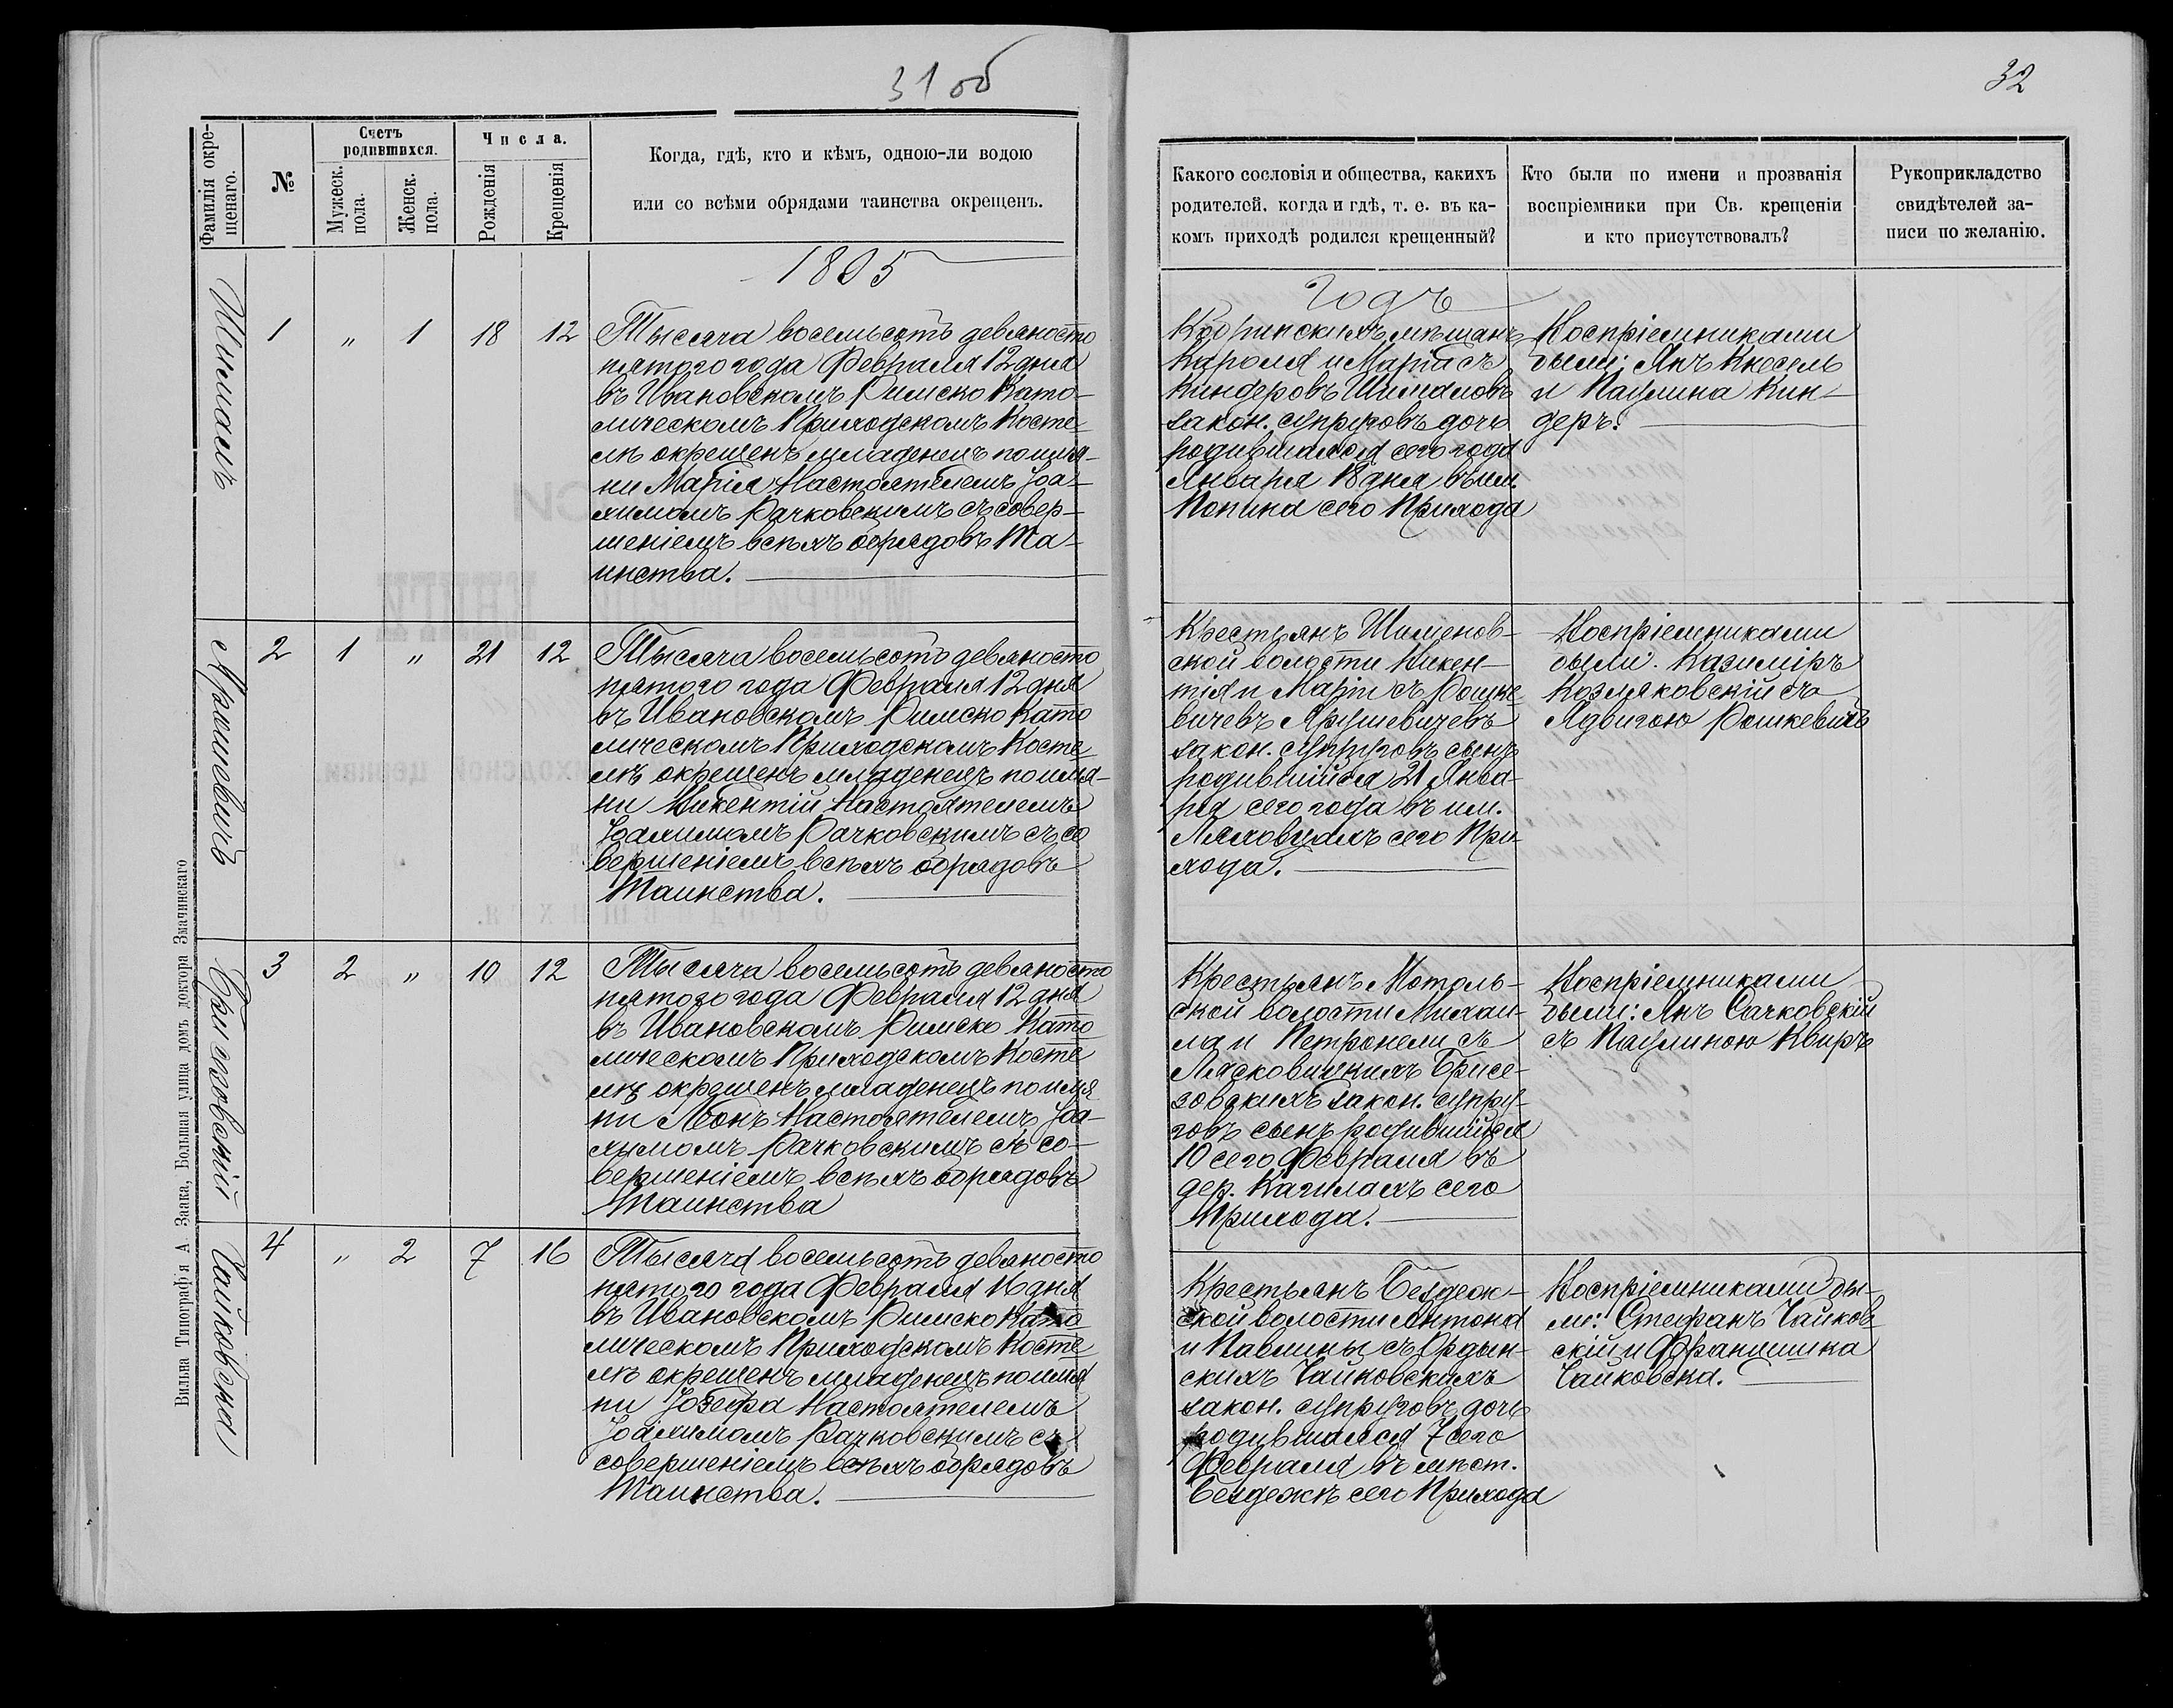 31 об
Фамилія окре-
щенаго.
№
Счетъ
родившихся.
Мужеск.
пола.
Женск.
пола.
Числа.
Рожденія
Крещенія
Когда, гдѣ, кто и кѣмъ, одною-ли водою
или со всѣми обрядами таинства окрещенъ.
1895
Шималъ
1 „ 1 18 12
Тысяча восемьсотъ девяносто
пятого года Февраля 12 дня
въ Ивановскомъ Римско Като-
лическомъ Приходскомъ Косте
лѣ окрещенъ младенецъ по имя-
ни Марія Настоятелемъ Іоа-
химомъ Рачковскимъ съ совер-
шеніемъ всѣхъ обрядовъ Та-
инства.
Ярушевичъ
2 1 „ 21 12
Тысяча восемьсотъ девяносто
пятого года Февраля 12 дня
въ Ивановскомъ Римско Като
лическомъ Приходскомъ Косте
лѣ окрещенъ младенецъ по имя-
ни Викентій Настоятелемъ
Іоахимомъ Рачковскимъ съ со
вершеніемъ всѣхъ обрядовъ
Таинства.
Бригозовскій
3 2 „ 10 12
Тысяча восемьсотъ девяносто
пятого года Февраля 12 дня
въ Ивановскомъ Римско Като
лическомъ Приходскомъ Косте
лѣ окрещенъ младенецъ по имя
ни Леонъ Настоятелемъ Іоа-
химомъ Рачковскимъ съ со-
вершеніемъ всѣхъ обрядовъ
Таинства
Чайковска
4 „ 2 7 16
Тысяча восемьсотъ девяносто
пятого года Февраля 16 дня
въ Ивановскомъ Римско Като
лическомъ Приходскомъ Косте
лѣ окрещенъ младенецъ по имя
ни Іозефа Настоятелемъ
Іоахимомъ Рачковскимъ съ
совершеніемъ всѣхъ обрядовъ
Таинства.
Вильна Типографія А. Заака, Большая улица домъ доктора Змачинскаго
32
Какого сословія и общества, какихъ
родителей. когда и гдѣ, т. е. въ ка-
комъ приходѣ родился крещенный?
Кто были по имени и прозванія
воспріемники при Св. крещеніи
и кто присутствовалъ?
Рукоприкладство
свидѣтелей за-
писи по желанію.
годъ
Кобринскихъ мѣщанъ
Кароля и Маріи съ
Киндеровъ Шималовъ
закон. супруговъ дочь
родившаяся сего года
Января 18 дня въ им.
Попина сего Прихода
Воспріемниками
были: Янъ Кнесель
и Паулина Кин-
деръ.
Крестьянъ Шименов-
ской волости Викен-
тія и Маріи съ Рошке
вичевъ Ярушевичевъ
закон. супруговъ сынъ
родившійся 21 Янва-
ря сего года въ им.
Ляховцахъ сего При-
хода.
Воспріемниками
были: Казиміръ
Козляковскій съ
Ядвигою Рошкевичъ
Крестьянъ Мотоль-
ской волости Михаи-
ла и Петронели съ
Лясковичкихъ Брисе-
зовскихъ закон. супру-
говъ сынъ родившійся
10 сего Февраля въ
дер. Качилахъ сего
Прихода.
Воспріемниками
были: Янъ Сачковскій
съ Паулиною Квиръ
Крестьянъ Бездеж-
ской волости Антона
и Павлины съ Ордын-
скихъ Чайковскихъ
закон. супруговъ дочь
родившаяся 7 сего
Февраля въ мѣст.
Бездежѣ сего Прихода
Воспріемниками бы-
ли: Стефанъ Чайков
скій и Францишка
Чайковска.